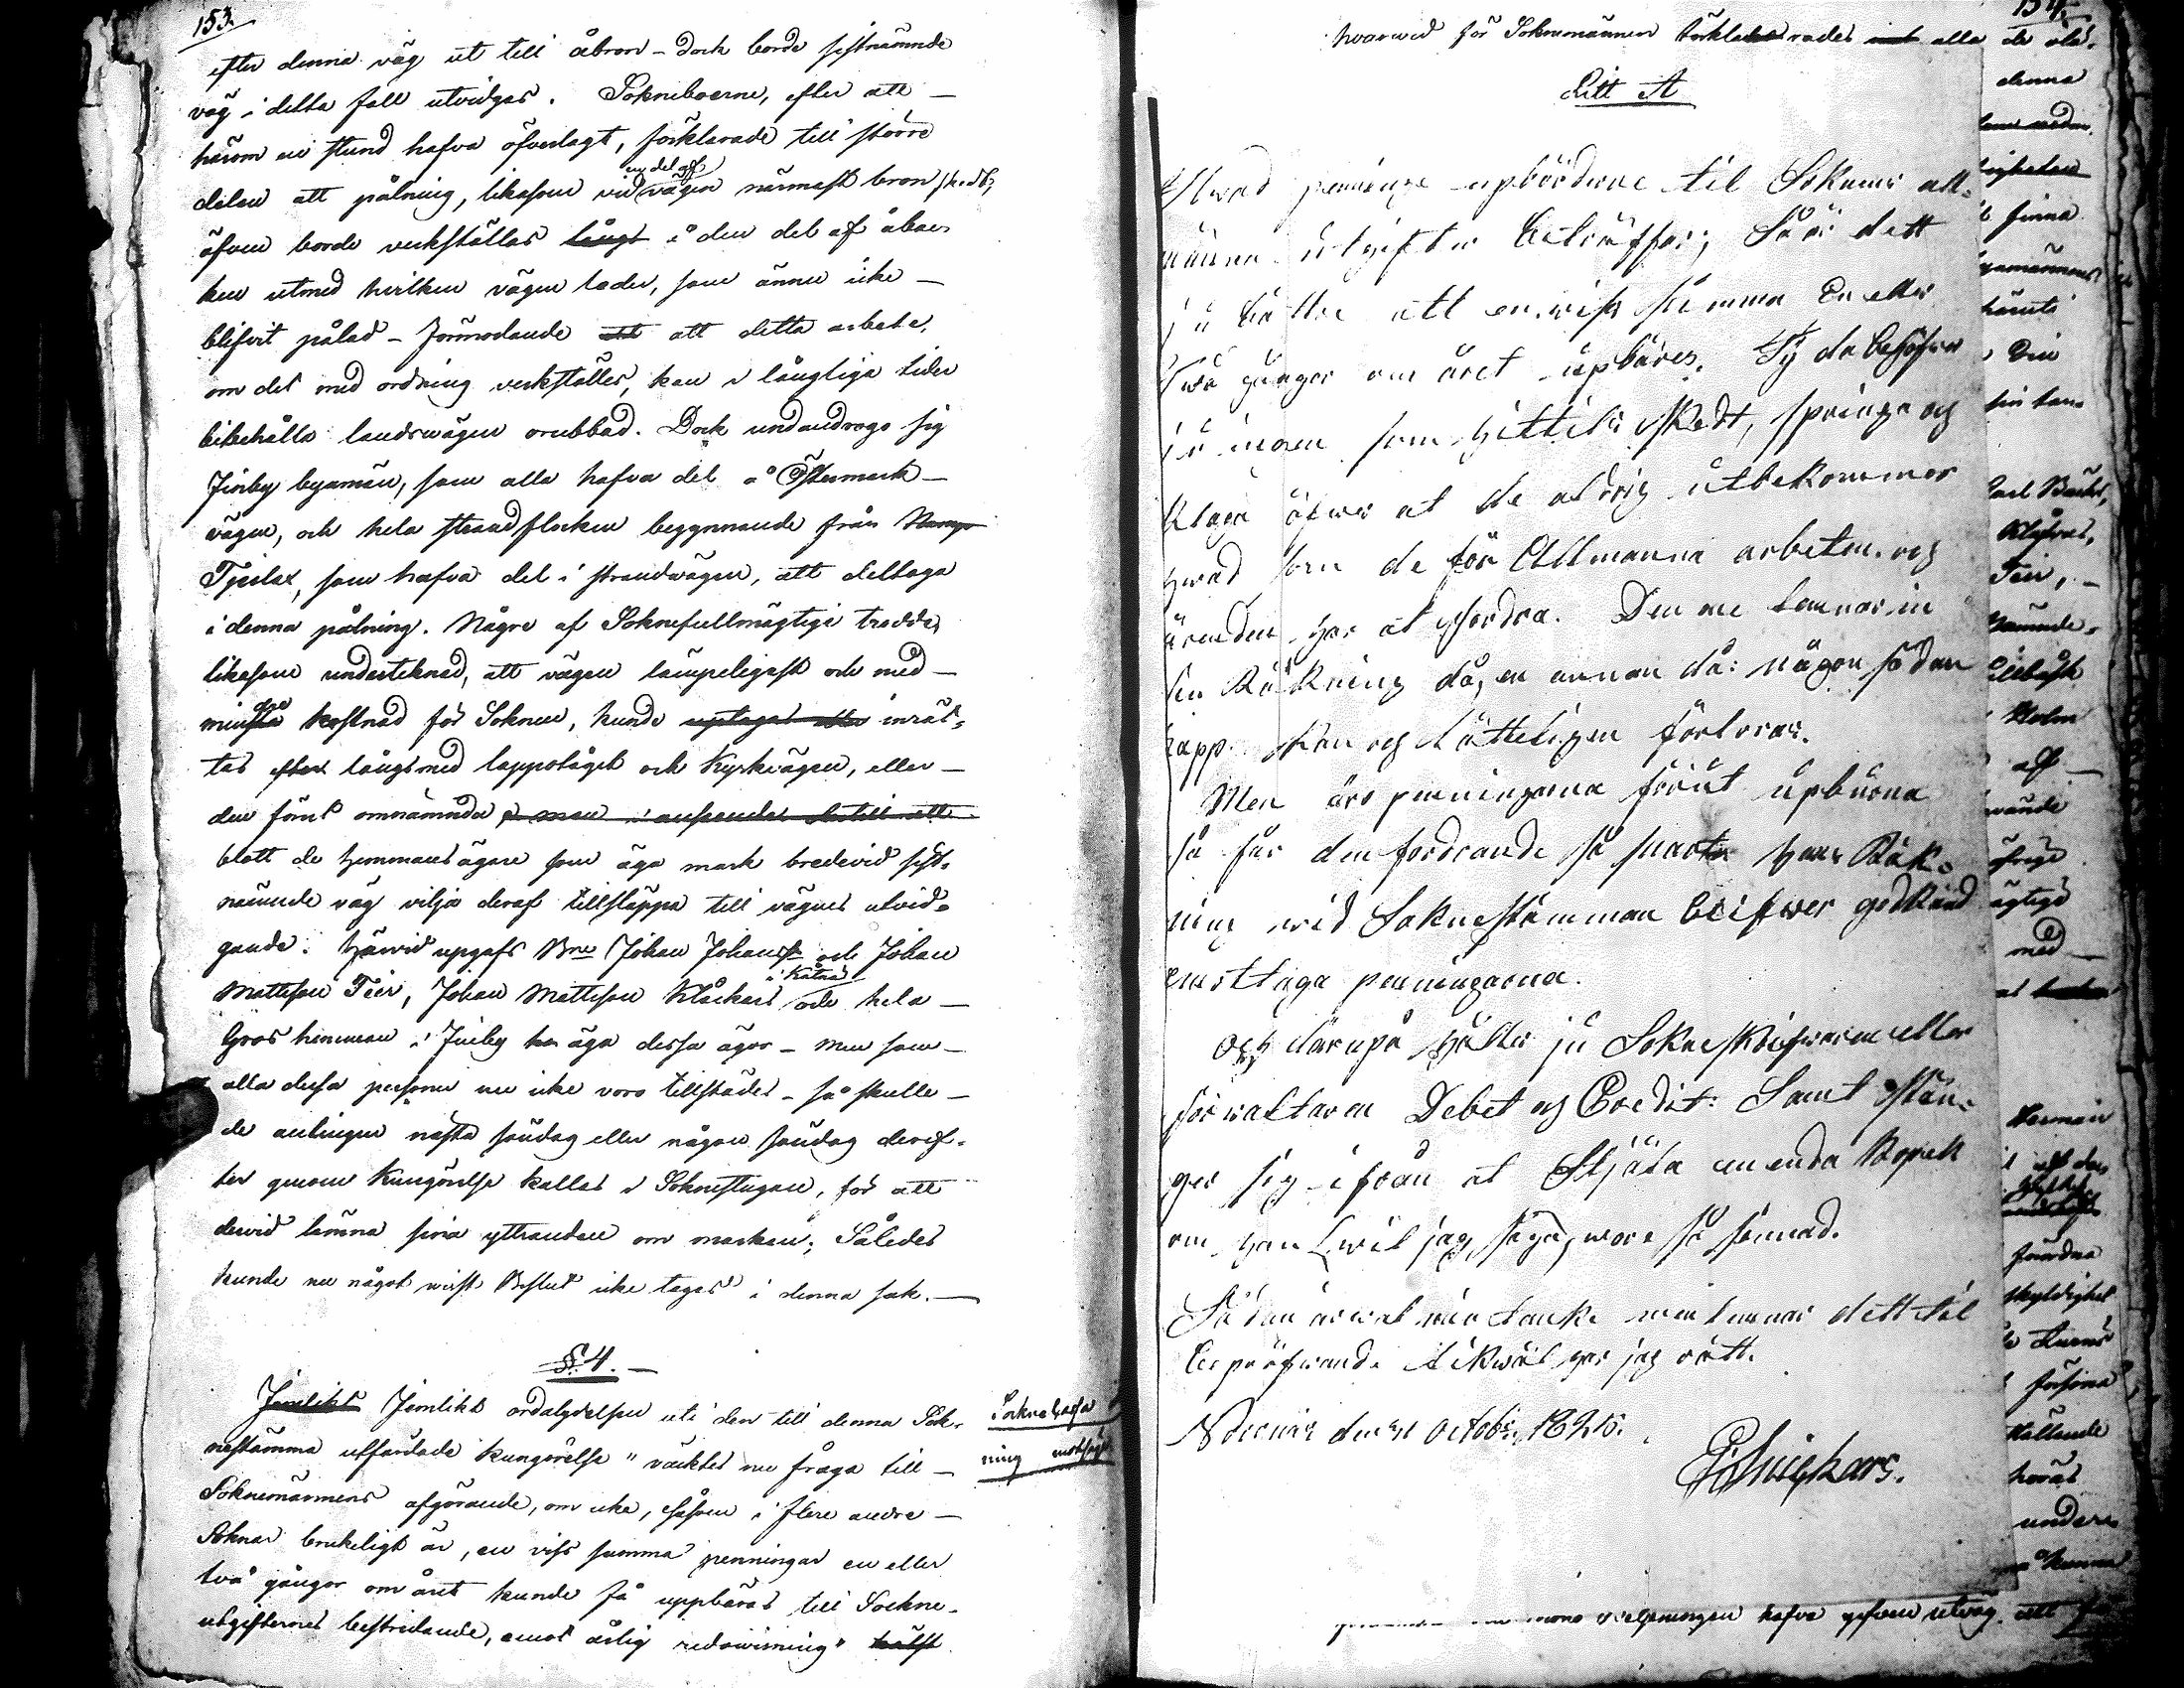 153.
efter denna väg ut till åbron – Dock borde sistnämnde
väg i detta fall utvidgas. Sokneboerne, efter att –
härom en stund hafva öfverlagt, förklarade till större
delen att pålning, likasom vid en del af vägen närmast bron skedt,
äfven borde verkställas långs å den del af åbac
ken utmed hvilken vägen löder, som ännu icke –
blifvit pålad – förmodande att detta arbete,
om det med ordning verkställes, kan i långliga tider
bibehålla landsvägen orubbad. Dock undandrogo sig
Finby byamän, som alla hafva del å Östermark –
vägen, och hela strandflocken begynnande från
Tjerlax, som hafva del i strandvägen, att deltaga
i denna pålning. Någre af Soknefullmägtige trodde,
likasom undertecknad, att vägen lämpeligast och med –
minsta kostnad för Soknen, kunde uptagas inrät-
tas efter långsmed lappotåget och Kyrkvägen, eller –
den förut omnämnda
blott de Hemmansägare som äga mark bredevid sist-
nämnde väg vilja deraf tillsläppa till vägens utvid-
gande. Härvid upgafs Bne Johan Johans och Johan
Mattsson Teir, Johan Mattsson Klåckars i Kåtnäs och hela –
Gros hemman i Finby äga dessa ägor – men som –
alla dessa personer nu icke voro tillstädes – så skulle –
de antingen nästa söndag eller någon söndag deref-
ter genom Kungörelse kallas i Soknestugan, för att
dervid lemna sina yttranden om marken; Således
kunde nu något visst Beslut icke tagas i denna sak. –
§ 4. –
Jemlikt Jemlikt ordalydelsen uti den till denna Sok-
nestämma utfärdade kungörelse "väcktes nu fråga till –
Soknemännens afgörande, om icke, såsom i flere andre –
Soknar brukeligt är, en viss summa penningar en eller
två gångor om året kunde få uppbäras till Sockne-
utgifternes bestridande, emot årlig redovisning"
ning
154.
hvarvid för Soknemännen förklarades alla de
Litt A
Hwad penninge upbörderne til Soknens all-
männa utgifter beträffar; Så är dett
ju bättre att en wiss summa En eller
Twå gånger om året upbäres. Ty då behöfwer
ju ingen som hittils skedt, springa och
klaga öfwer at de aldrig utbekommer
hwad som de för Allmänna arbeten och
ärenden har at fordra. Den ene lemnar in
sin Räkning då, en annan då: någon sådan
lapp kan och lätteligen förloras.
Men äro penningarna förut upburna
så får den fordrande så snart hans Räk-
ning wid Soknestämman blifwer godkänd
emottaga penningarna.
Och därupå håller ju Sokneskrifwaren eller
förwaltaren Debet och Credit: Samt stän-
ger sig ifrån at Stjäla en enda Kopek
om han (wil jag säga) wore så sinnad.
Sådan är wäl min tanke men lemnar dett til
bepröfwande. likwäl har jag rätt.
Närpes den 31 Octobr.
denna
finna
Din
Carl
Klåfvas,
Teir, –
Holm
af –
öfrige
med –
Herman
fordna
skyldighet
hållande
höras
under
hafva gifven utväg, att